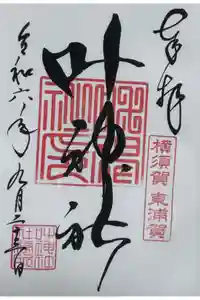 奉拝
横須賀 東浦賀
叶神社
令和六年九月二十三日